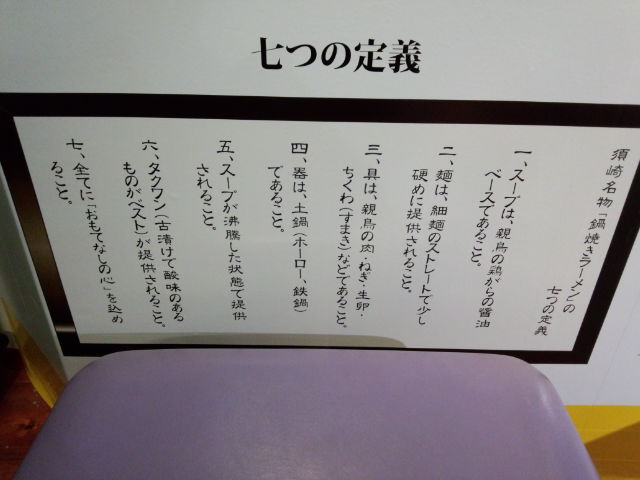 七つの定義
須崎名物「鍋焼きラーメン」の
七つの定義
一、スープは、親鳥の鶏がらの醤油
ベースであること。
二、麺は、細麺のストレートで少し
硬めに提供されること。
三、具は、親鳥の肉・ねぎ・生卵・
ちくわ(すまき)などであること。
四、器は、土鍋(ホーロー、鉄鍋)
であること。
五、スープが沸騰した状態で提供
されること。
六、タクワン(古漬けで酸味のある
ものがベスト)が提供されること。
七、全てに「おもてなしの心」を込め
ること。